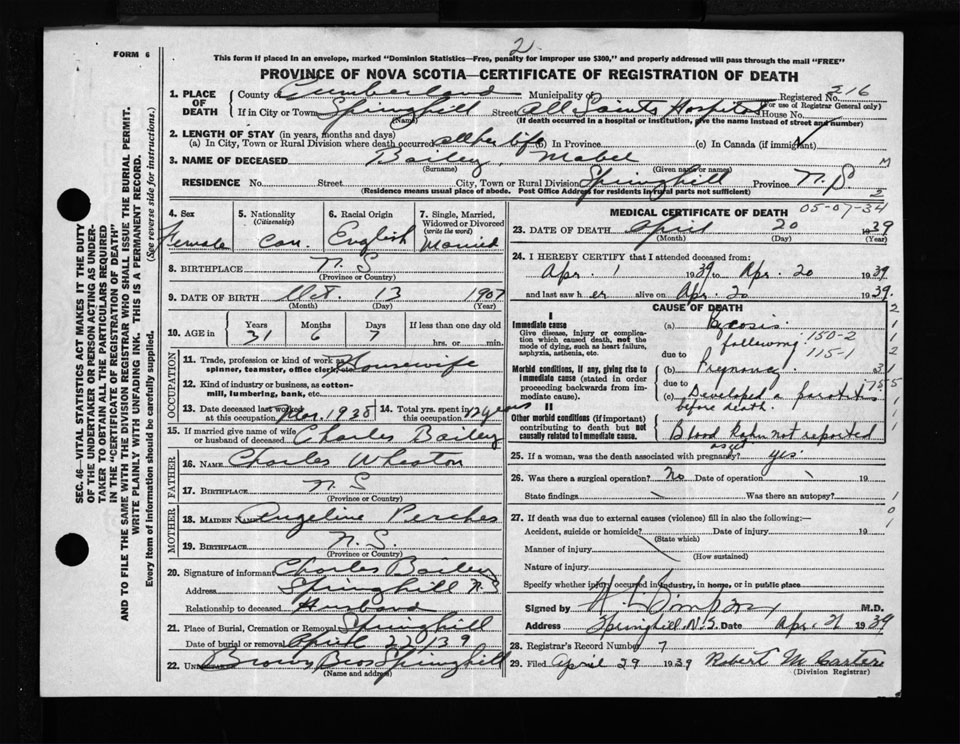 2
FORM 6
This form if placed in an envelope, marked "Dominion Statistics—Free, penalty for improper use $300," and properly addressed will pass through the mail "FREE"
PROVINCE OF NOVA SCOTIA—CERTIFICATE OF REGISTRATION OF DEATH
1. PLACE OF DEATH
County of Cumberland Municipality of Registered No. 216
(For use of Registrar General only)
If in City or Town Springhill Street All Saints Hospital House No.
(Name) (If death occurred in a hospital or institution, give the name instead of street and number)
2. LENGTH OF STAY (in years, months and days)
(a) In City, Town or Rural Division where death occurred all her life (b) In Province (c) In Canada (if immigrant)
3. NAME OF DECEASED Bailey, Mabel M
(Surname) (Given name or names)
RESIDENCE No. Street City, Town or Rural Division Springhill Province N.S
(Residence means usual place of abode. Post Office Address for residents in rural parts not sufficient) 2
4. Sex Female
5. Nationality (Citizenship) Can.
6. Racial Origin English
7. Single, Married, Widowed or Divorced (write the word) Married
8. BIRTHPLACE N.S
(Province or Country)
9. DATE OF BIRTH Oct. 13 1907
(Month) (Day) (Year)
10. AGE in Years 31 Months 6 Days 7 If less than one day old hrs. or min.
OCCUPATION
11. Trade, profession or kind of work as spinner, teamster, office clerk, etc. Housewife
12. Kind of industry or business, as cotton-mill, lumbering, bank, etc.
13. Date deceased last worked at this occupation Mar. 1938
14. Total yrs. spent in this occupation 12 years
15. If married give name of wife or husband of deceased Charles Bailey
FATHER
16. NAME Charles Wheaton
17. BIRTHPLACE N.S
(Province or Country)
MOTHER
18. MAIDEN NAME Angeline
19. BIRTHPLACE N.S.
(Province or Country)
20. Signature of informant Charles Bailey
Address Springhill N.S
Relationship to deceased Husband
21. Place of Burial, Cremation or Removal Springhill
Date of burial or removal April 22 1939
22. Undertaker Brown Bros Springhill
(Name and address)
MEDICAL CERTIFICATE OF DEATH 05-07-34
23. DATE OF DEATH April 20 1939
(Month) (Day) (Year)
24. I HEREBY CERTIFY that I attended deceased from:
Apr. 1 1939 to Apr. 20 1939
and last saw her alive on Apr. 20 1939.
CAUSE OF DEATH
I
Immediate cause
Give disease, injury or complication which caused death, not the mode of dying, such as heart failure, asphyxia, asthenia, etc.
(a)
due to following 150-2
115-1
Morbid conditions, if any, giving rise to immediate cause (stated in order proceeding backwards from immediate cause)
(b) Pregnancy
due to
(c) Developed a parotitis before death.
II
Other morbid conditions (if important) contributing to death but not causally related to immediate cause
Blood Kahn not reported
25. If a woman, was the death associated with pregnancy? yes.
26. Was there a surgical operation? No Date of operation 19
State findings Was there an autopsy?
27. If death was due to external causes (violence) fill in also the following:—
Accident, suicide or homicide? Date of injury 19
(State which)
Manner of injury
(How sustained)
Nature of injury
Specify whether injury occurred in industry, in home, or in public place
Signed by M.D.
Address Springhill N.S. Date Apr. 21 1939
28. Registrar's Record Number 7
29. Filed April 29 1939 Robert M Carter
(Division Registrar)
SEC. 46—VITAL STATISTICS ACT MAKES IT THE DUTY
OF THE UNDERTAKER OR PERSON ACTING AS UNDER-
TAKER TO OBTAIN ALL THE PARTICULARS REQUIRED
IN THE "CERTIFICATE OF REGISTRATION OF DEATH"
AND TO FILE THE SAME WITH THE DIVISION REGISTRAR WHO SHALL ISSUE THE BURIAL PERMIT.
WRITE PLAINLY WITH UNFADING INK. THIS IS A PERMANENT RECORD.
Every item of information should be carefully supplied. (See reverse side for instructions.)